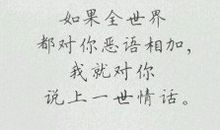 如果全世界
都对你恶语相加，
我就对你
说上一世情话。